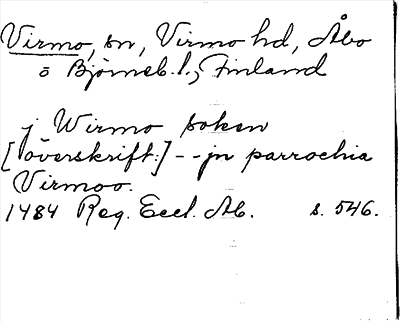 Virmo, sn, Virmo hd, Åbo
o Björneb. l., Finland
j Wirmo soken
[överskrift:] -- jn parrochia
Virmoo.
1484 Reg. Eccl. Ab. s. 546.